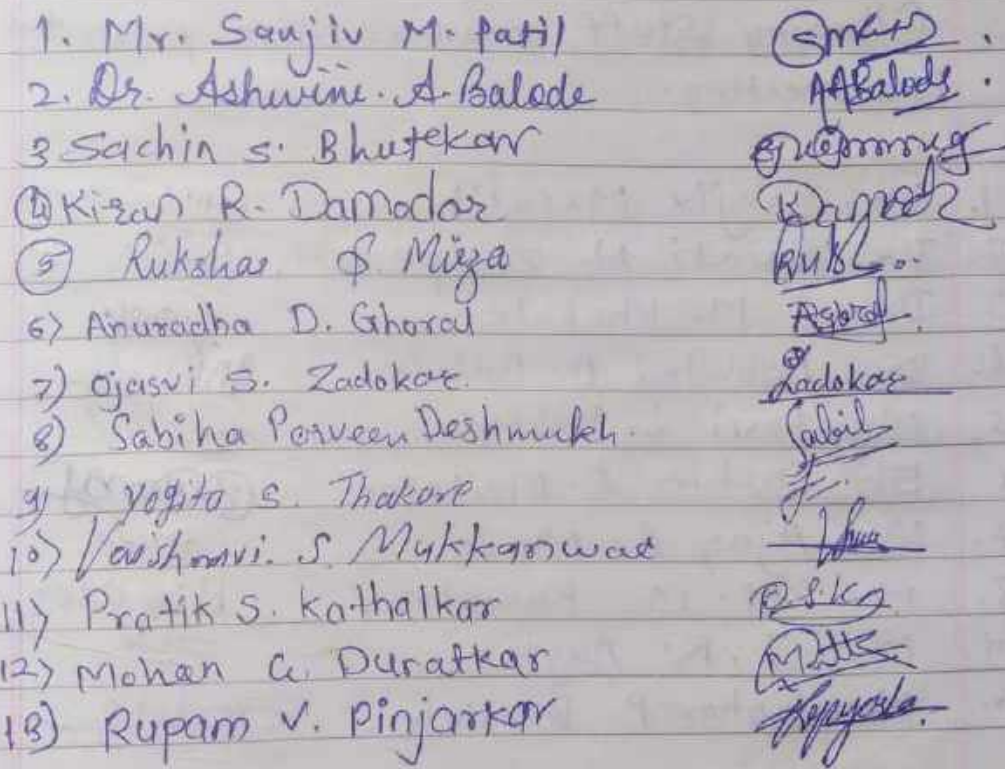 1. Mr. Sanjiv M. Patil
2. Dr. Ashwini. A. Balode AABalode.
3 Sachin S. Bhutekar
4 Kiran R. Damodar
5 Rukshar S. Mirza
6) Anuradha D. Ghoral
7) Ojasvi S. Zadokar. Zadokar
8) Sabiha Parveen Deshmukh. Sabih
9) Yogita S. Thakare
10) Vaishnavi. S. Mukkanwar
11) Pratik S. Kathalkar
12) Mohan G. Duratkar
13) Rupam V. Pinjarkar